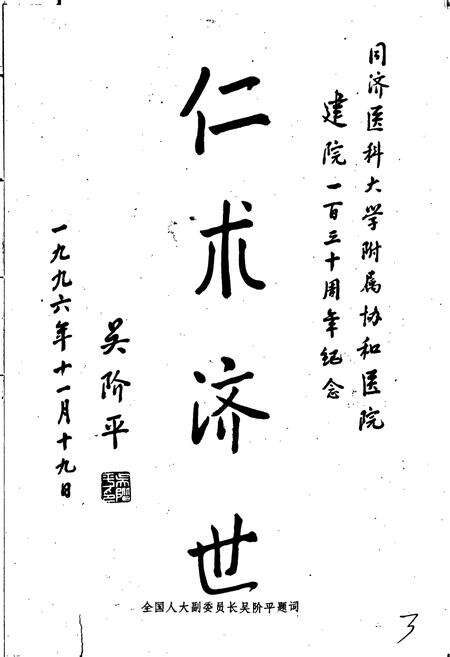 同济医科大学附属协和医院
建院一百三十周年纪念
仁术济世
吴阶平
一九九六年十一月十九日
全国人大副委员长吴阶平题词
3